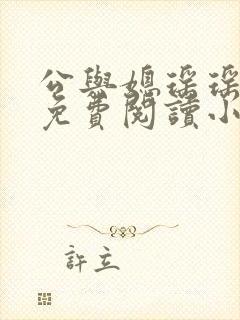 公與媳瑶瑶
免費閱讀小
許立